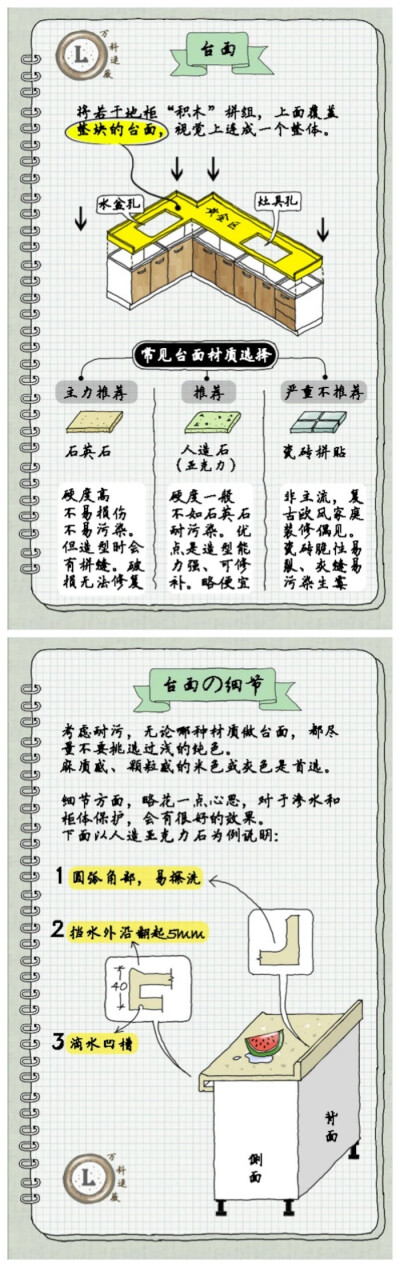 L
万科速成
台面
将若干地柜“积木”拼组，上面覆盖
整块的台面，视觉上连成一个整体。
水盆孔
黄金区
灶具孔
常见台面材质选择
主力推荐
推荐
严重不推荐
石英石
人造石
(亚克力)
瓷砖拼贴
硬度高
不易损伤
不易污染。
但造型时会
有拼缝。破
损无法修复
硬度一般
不如石英石
耐污染。优
点是造型能
力强、可修
补。略便宜
非主流，复
古欧风家庭
装修偶见。
瓷砖脆性易
裂、夹缝易
污染生霉
台面の细节
考虑耐污，无论哪种材质做台面，都尽
量不要挑选过浅的纯色。
麻质感、颗粒感的米色或灰色是首选。
细节方面，略花一点心思，对于渗水和
柜体保护，会有很好的效果。
下面以人造亚克力石为例说明：
1 圆弧角部，易擦洗
2 挡水外沿翻起5mm
40
3 滴水凹槽
背面
侧面
L